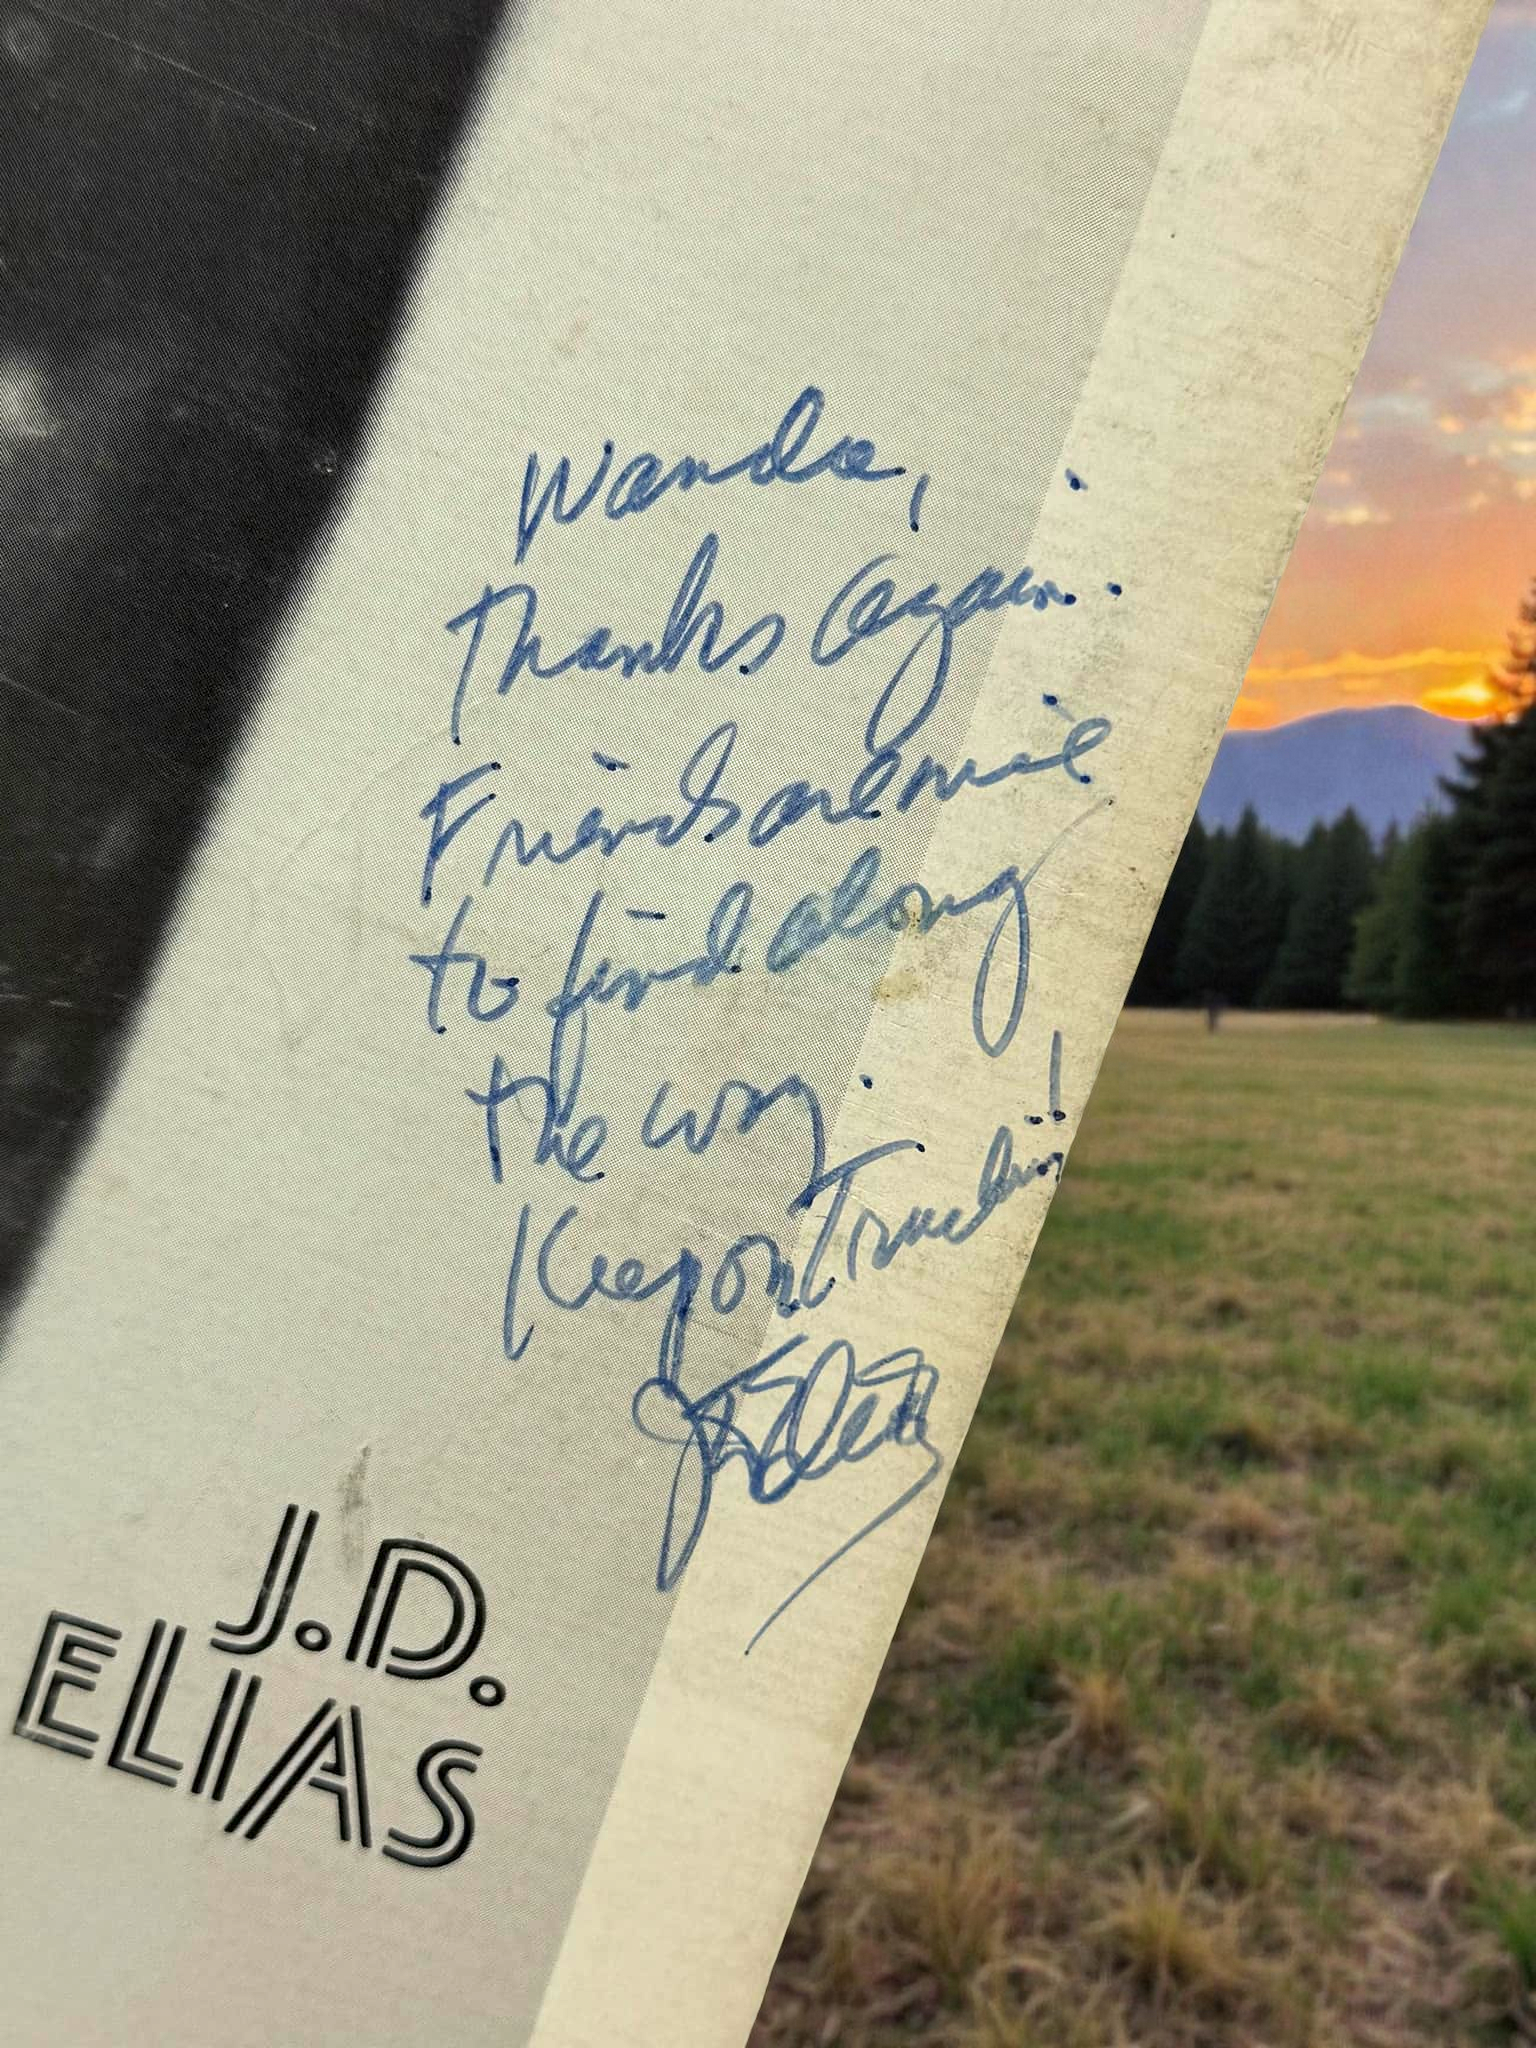 Wanda,
Thanks again.
Friends are nice
to find along
the way.
Keep on Truckin!
JD Elias
J.D.
ELIAS